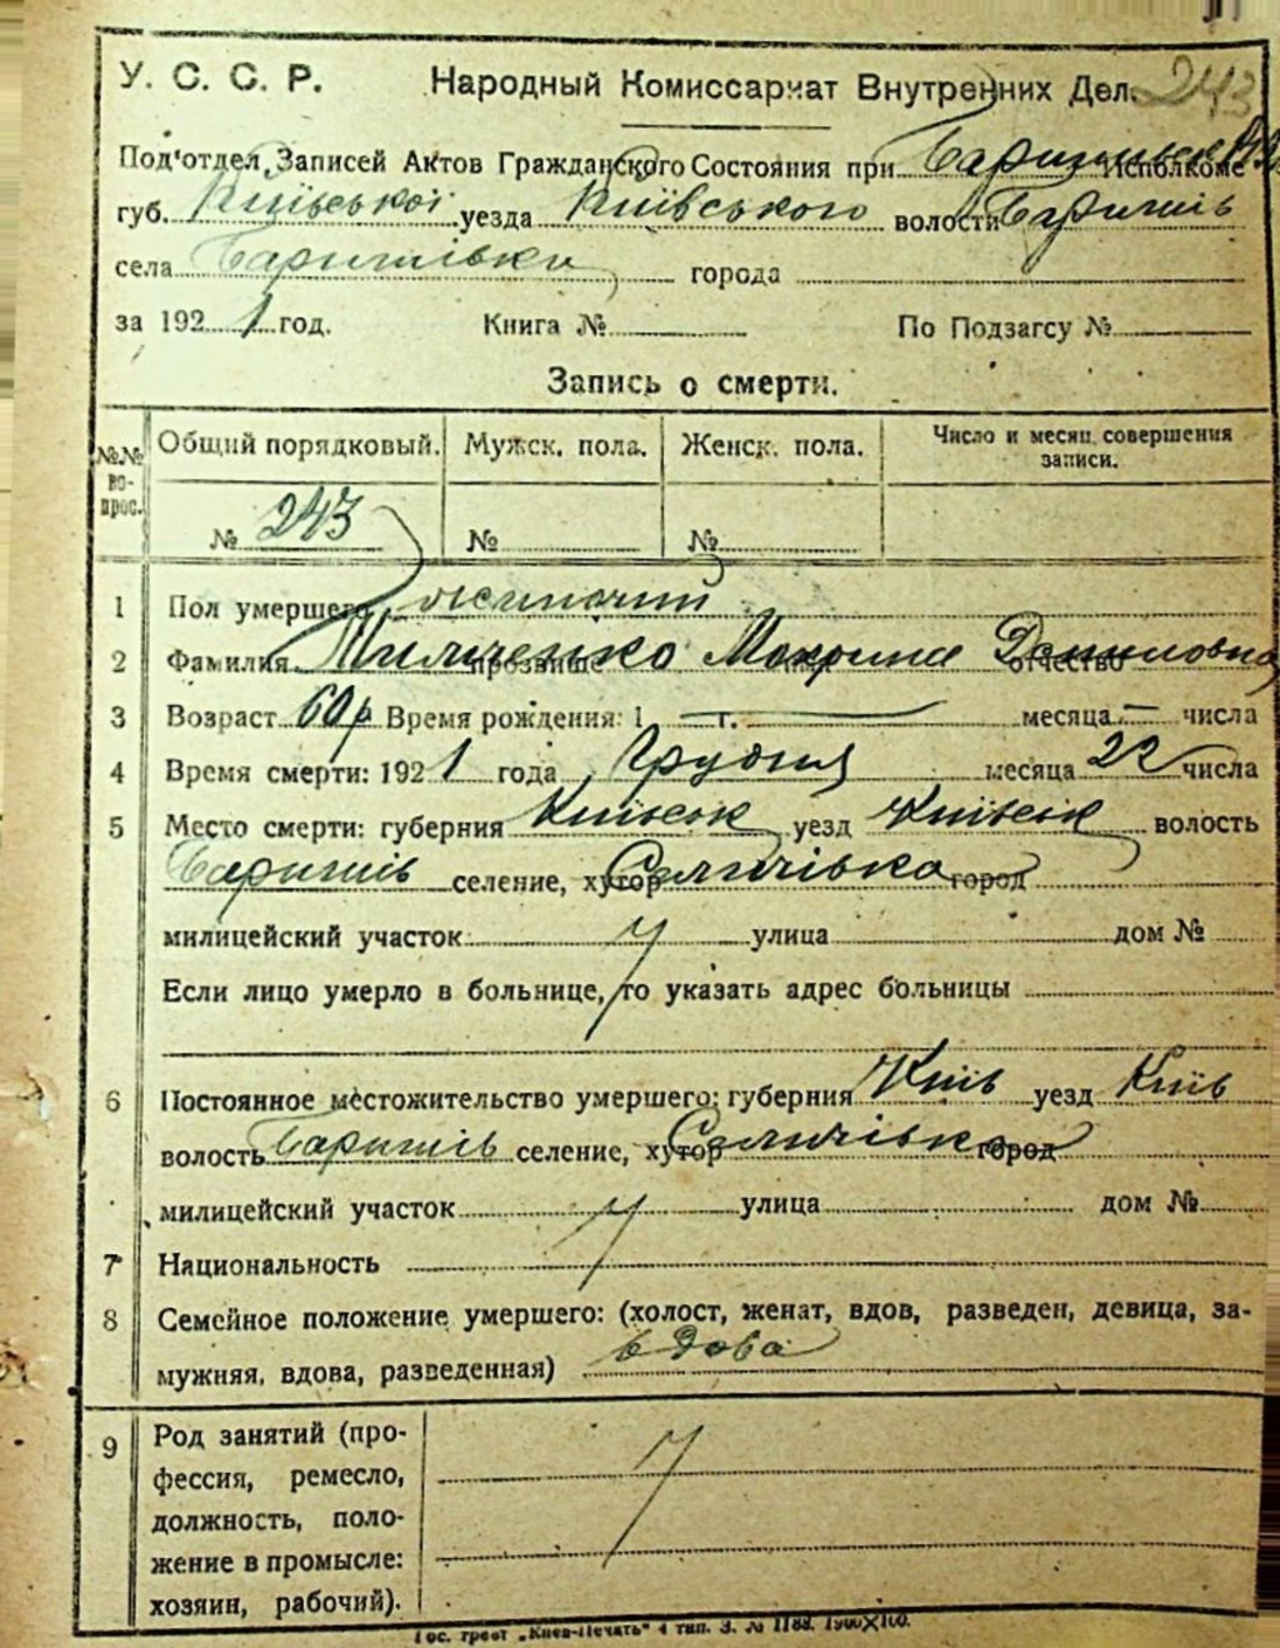 У. С. С. Р. Народный Комиссариат Внутренних Дел. 243
Под'отдел Записей Актов Гражданского Состояния при Исполкоме
губ. Київської уезда Київського волости Баришів
села Баришівки города
за 1921 год. Книга № По Подзагсу №
Запись о смерти.
№№ вопрос. Общий порядковый. Мужск. пола. Женск. пола. Число и месяц совершения записи.
№ 243 № №
1 Пол умершего жіночий
2 Фамилия прозвище Макрина отчество Даниловна
3 Возраст 60 р Время рождения: 1 г. месяца — числа
4 Время смерти: 1921 года Грудня месяца 22 числа
5 Место смерти: губерния Київськ уезд Київськ волость
Баришів селение, хутор Селичівка город
милицейский участок улица дом №
Если лицо умерло в больнице, то указать адрес больницы
6 Постоянное местожительство умершего: губерния Київ уезд Київ
волость Баришів селение, хутор Селичівка город
милицейский участок улица дом №
7 Национальность
8 Семейное положение умершего: (холост, женат, вдов, разведен, девица, за-
мужняя, вдова, разведенная) вдова
9 Род занятий (про-
фессия, ремесло,
должность, поло-
жение в промысле:
хозяин, рабочий).
Гос. трест „Киев-Печать" 4 тип. З. № 1188. 1900×100.